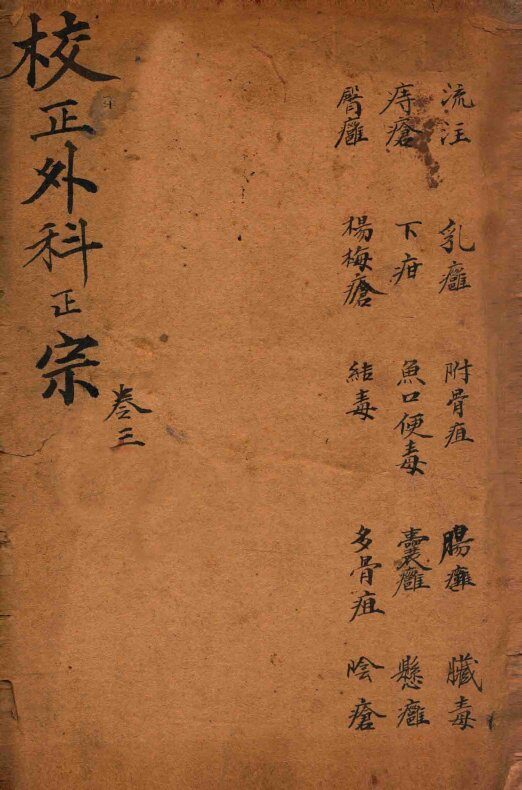 流注 乳癰 附骨疽 腸癰 臟毒
痔瘡 下疳 魚口便毒 囊癰 懸癰
臀癰 楊梅瘡 結毒 多骨疽 陰瘡
校正外科正宗
卷三